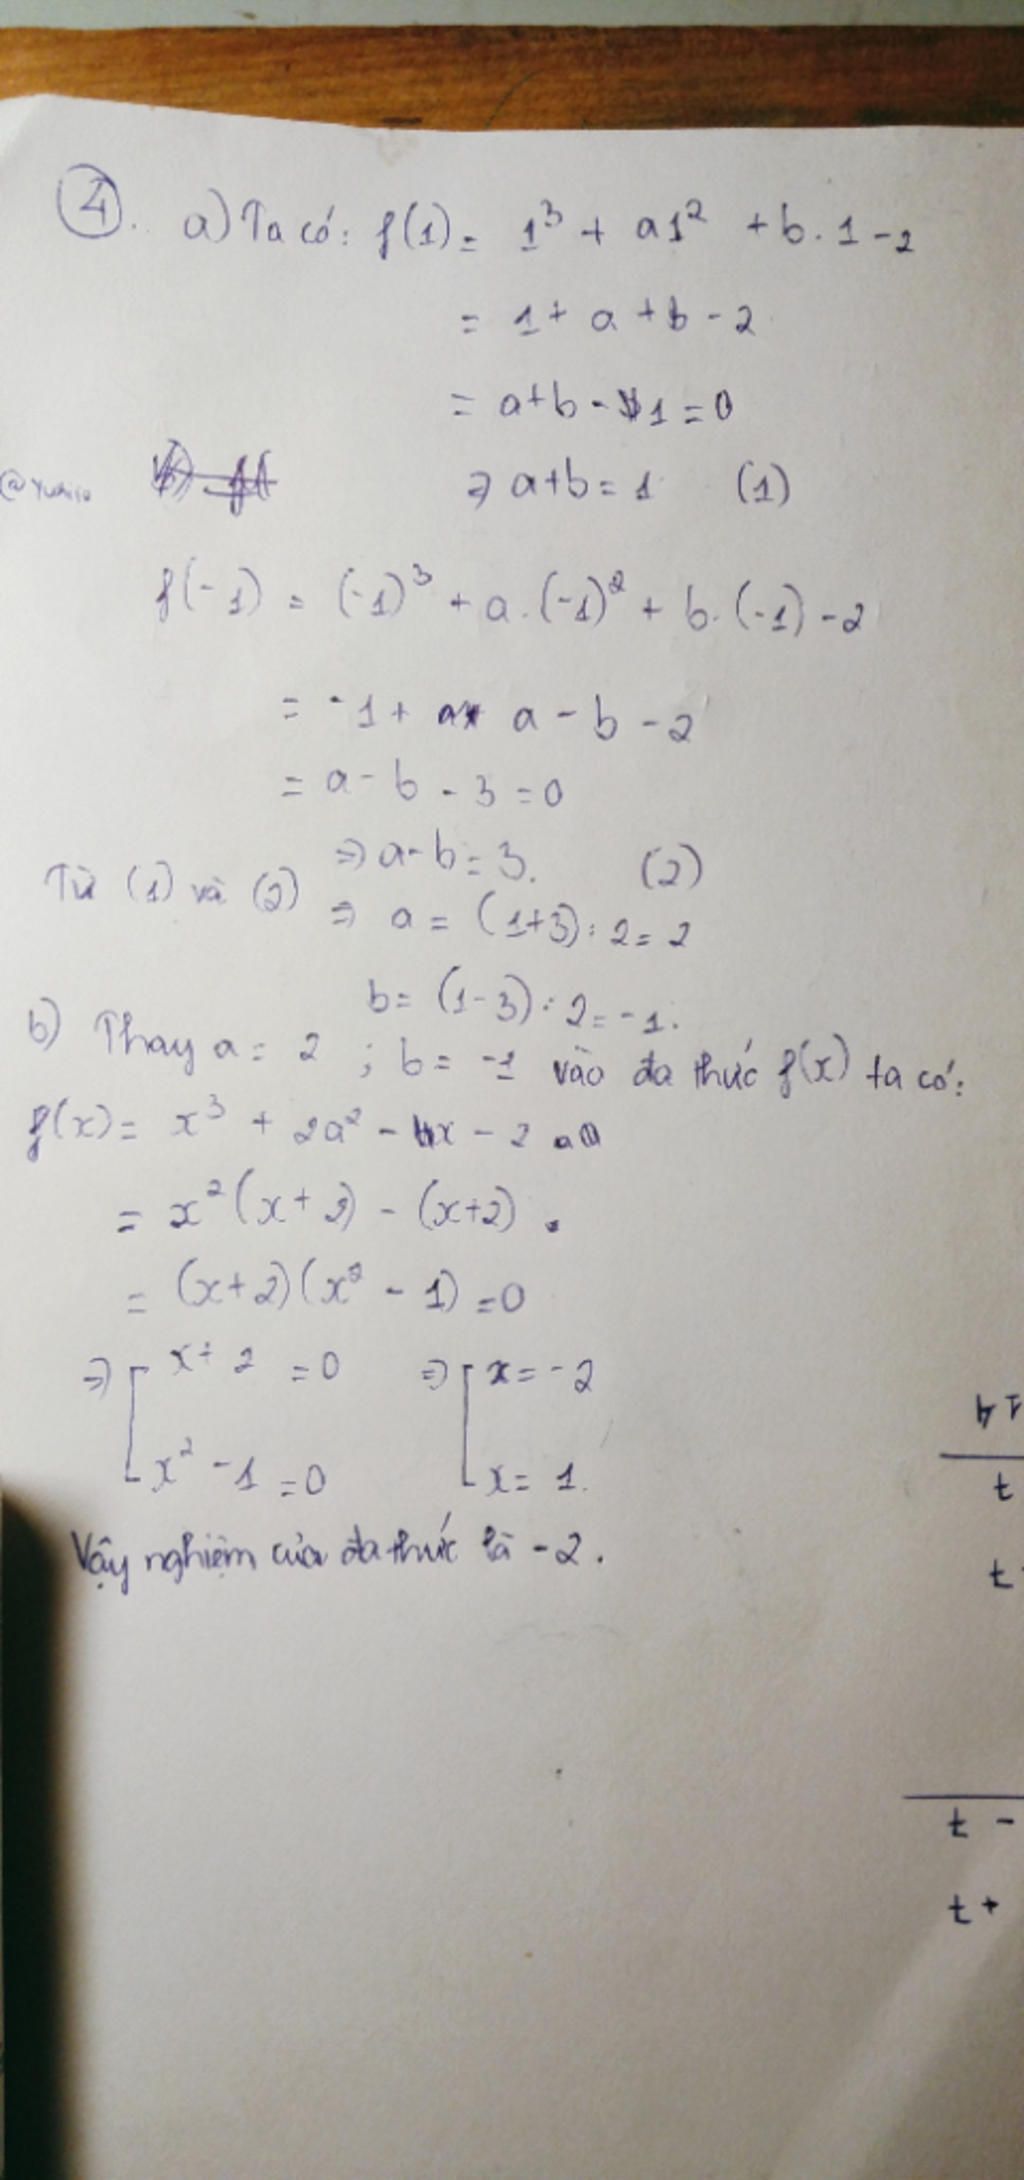 4. a) Ta có: f(1) = 1³ + a1² + b.1 - 2
= 1 + a + b - 2
= a + b - 1 = 0
@Yumio
=> a + b = 1 (1)
f(-1) = (-1)³ + a.(-1)² + b.(-1) - 2
= -1 + a - b - 2
= a - b - 3 = 0
=> a - b = 3. (2)
Từ (1) và (2) => a = (1+3) : 2 = 2
b = (1-3) : 2 = -1.
b) Thay a = 2 ; b = -1 vào đa thức f(x) ta có:
f(x) = x³ + 2a² - x - 2
= x²(x+2) - (x+2).
= (x+2)(x² - 1) = 0
=> [ x + 2 = 0 => [ x = -2
x² - 1 = 0 x = 1.
Vậy nghiệm của đa thức là -2.
t
t
t -
t +